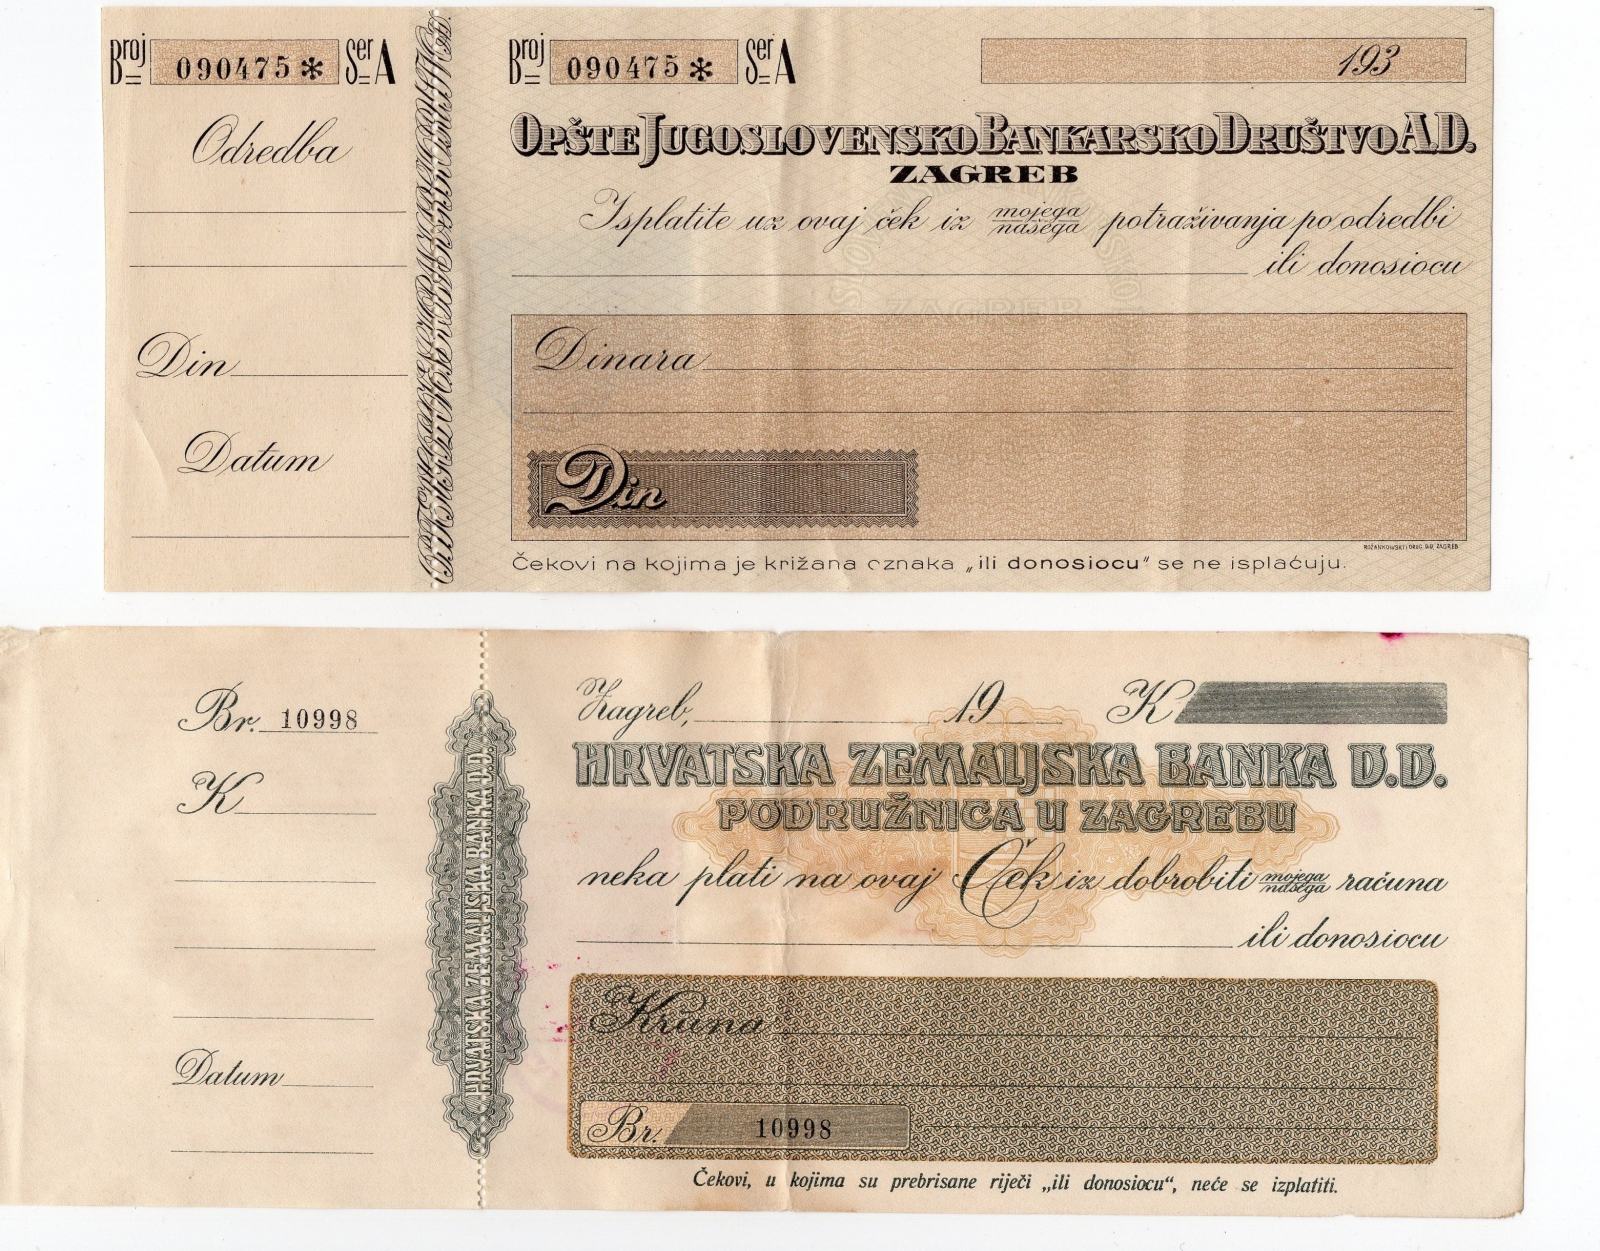 Broj 090475* Ser A
Odredba
Din
Datum
Broj 090475* Ser A
193
OPŠTE JUGOSLOVENSKO BANKARSKO DRUŠTVO A.D.
ZAGREB
Isplatite uz ovaj ček iz mojega našega potraživanja po odredbi
ili donosiocu
ZAGREB
Dinara
Din
ROŽANKOWSKI I DRUG D.D. ZAGREB
Čekovi na kojima je križana oznaka „ili donosiocu" se ne isplaćuju.
Br. 10998
K
Datum
HRVATSKA ZEMALJSKA BANKA D.D.
Zagreb, 19 K
HRVATSKA ZEMALJSKA BANKA D.D.
PODRUŽNICA U ZAGREBU
neka plati na ovaj Ček iz dobrobiti mojega našega računa
ili donosiocu
Kruna
Br. 10998
Čekovi, u kojima su prebrisane riječi „ili donosiocu“, neće se izplatiti.